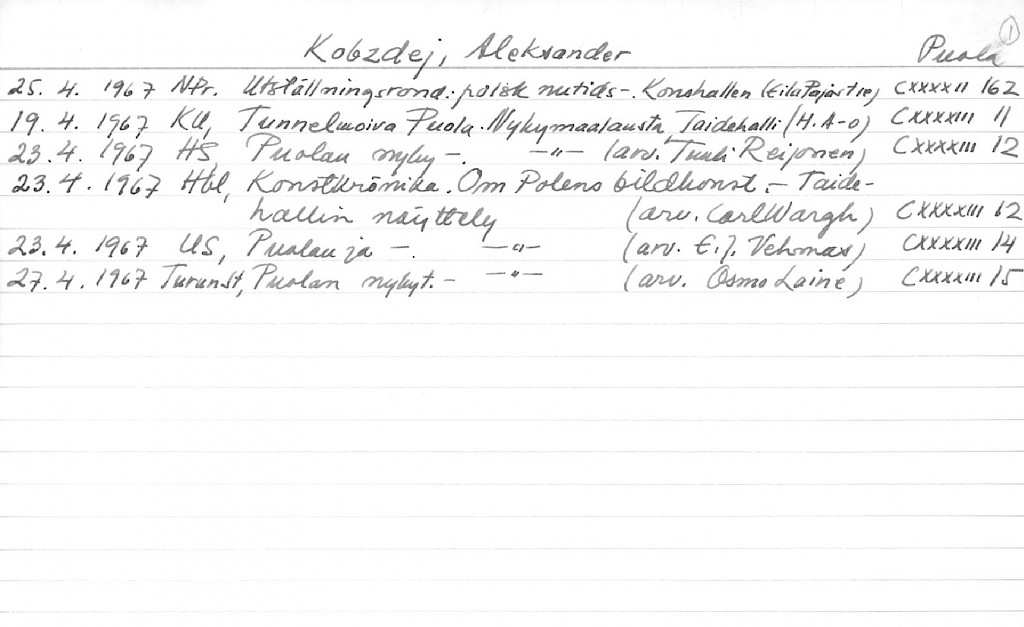 Kobzdej, Aleksander Puola 1
25. 4. 1967 NPr. Utställningsrond: polsk nutids-. Konsthallen (Eila Pajastie) CXXXXII 162
19. 4. 1967 KU, Tunnelmoiva Puola. Nykymaalausta, Taidehalli (H. A-o) CXXXXIII 11
23. 4. 1967 HS, Puolan nyky-. -"- (arv. Tuuli Reijonen) CXXXXIII 12
23. 4. 1967 Hbl, Konstkrönika. Om Polens bildkonst. - Taide-
hallin näyttely (arv. Carl Wargh) CXXXXIII 12
23. 4. 1967 US, Puolan ja -. -"- (arv. E. J. Vehmas) CXXXXIII 14
27. 4. 1967 Turunst, Puolan nykyt. - -"- (arv. Osmo Laine) CXXXXIII 15